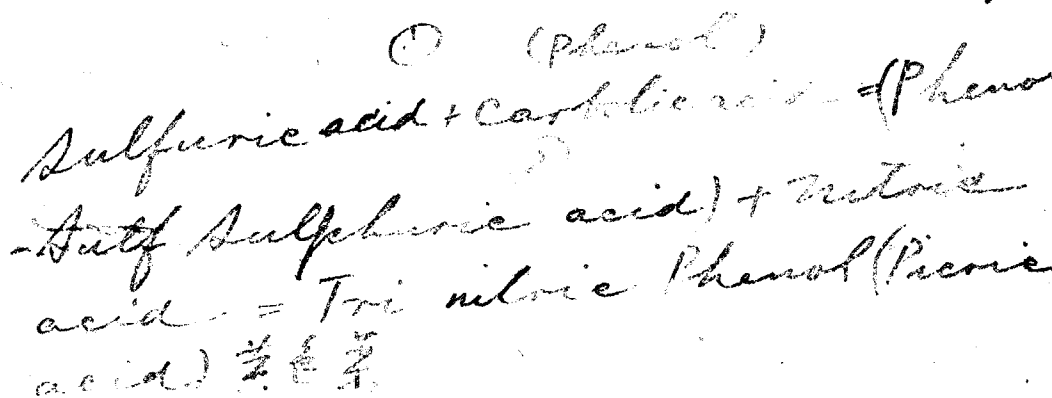 ① (Phenol)
Sulfuric acid + Carbolic acid = (Pheno
- Sulf Sulphuric acid) + nitric
acid = Tri nitric Phenol (Picric
acid)